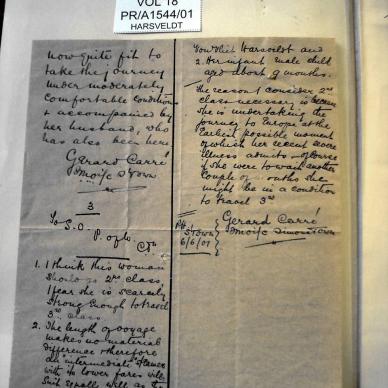 VOL 18
PR/A1544/01
HARSVELDT
now quite fit to
take the journey
under moderately
comfortable conditions
+ accompanied by
her husband, who
has also been here
Gerard Carré
S'Town
3
To S.O.
P. of W.
1. I think this woman
should go 2nd class,
I fear she is scarcely
strong enough to travel
3rd class
2. The length of voyage
makes no material
difference + therefore
an "intermediate" steamer
with lower fares will
suit equally well as the
Harsveldt and
2. Her infant male child
aged about 9 months.
The reason I consider 2nd
class necessary is because
she is undertaking the
journey to Europe at the
earliest possible moment
which her recent severe
illness admits of. Of course
if she were to wait another
couple of months she
might be in a condition
to travel 3rd
Gerard Carré
Simonstown
S'Town
6/6/01